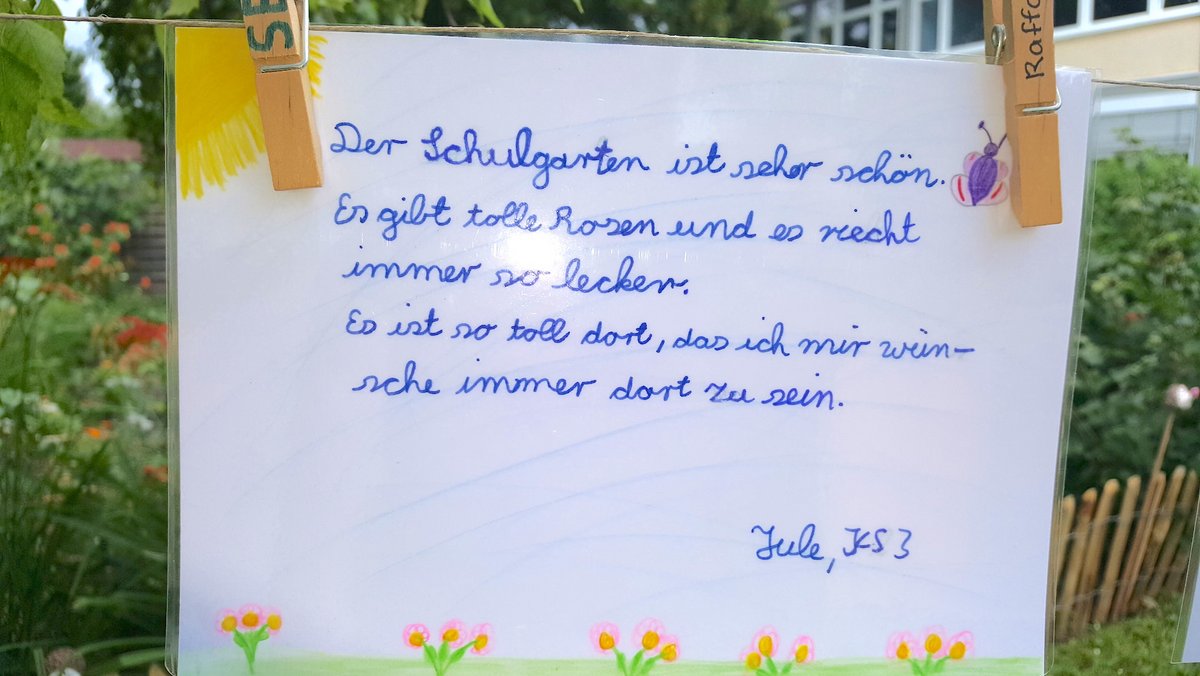 SE
Raffa
Der Schulgarten ist sehr schön.
Es gibt tolle Rosen und es riecht
immer so lecker.
Es ist so toll dort, das ich mir wün-
sche immer dort zu sein.
Jule, JKS 3